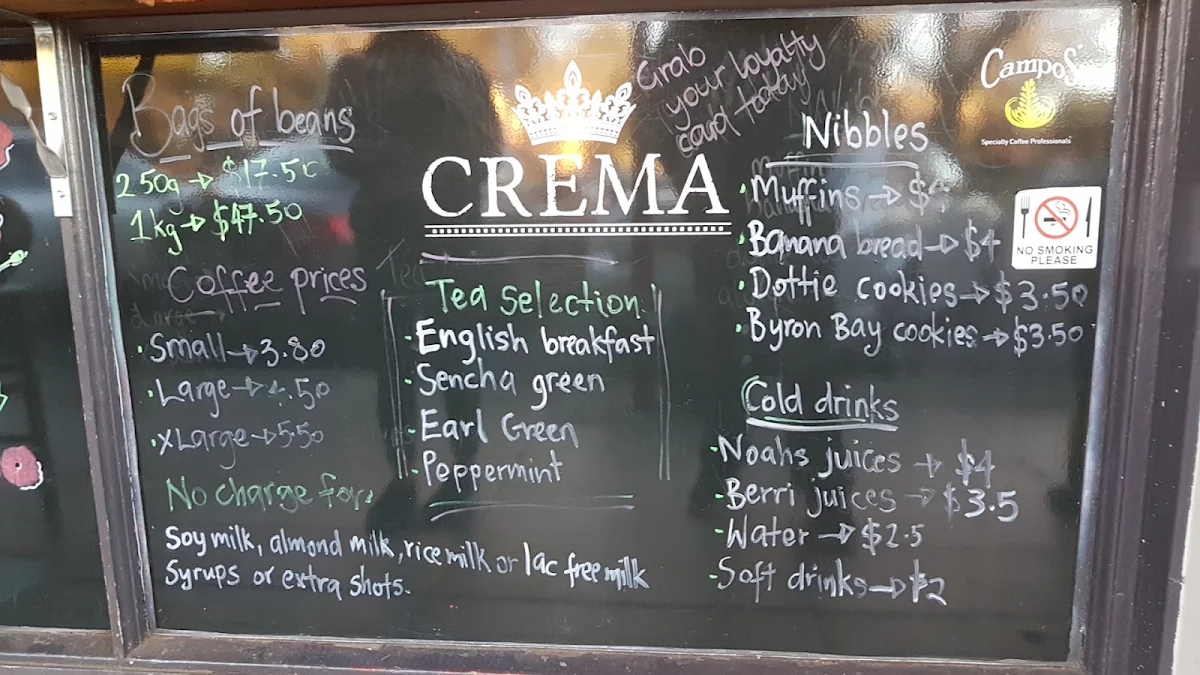 Bags of beans
250g → $17.50
1kg → $47.50
Coffee prices
· Small → 3.80
· Large → 4.50
· xLarge → 5.50
No charge for:
Soy milk, almond milk, rice milk or lac free milk
Syrups or extra shots.
CREMA
Tea selection
· English breakfast
· Sencha green
· Earl Green
· Peppermint
Grab
your loyalty
card today
Nibbles
· Muffins → $
· Banana bread → $4
· Dottie cookies → $3.50
· Byron Bay cookies → $3.50
Cold drinks
- Noahs juices → $4
- Berri juices → $3.5
- Water → $2.5
- Soft drinks → $2
CampoS
Specialty Coffee Professionals
NO SMOKING
PLEASE